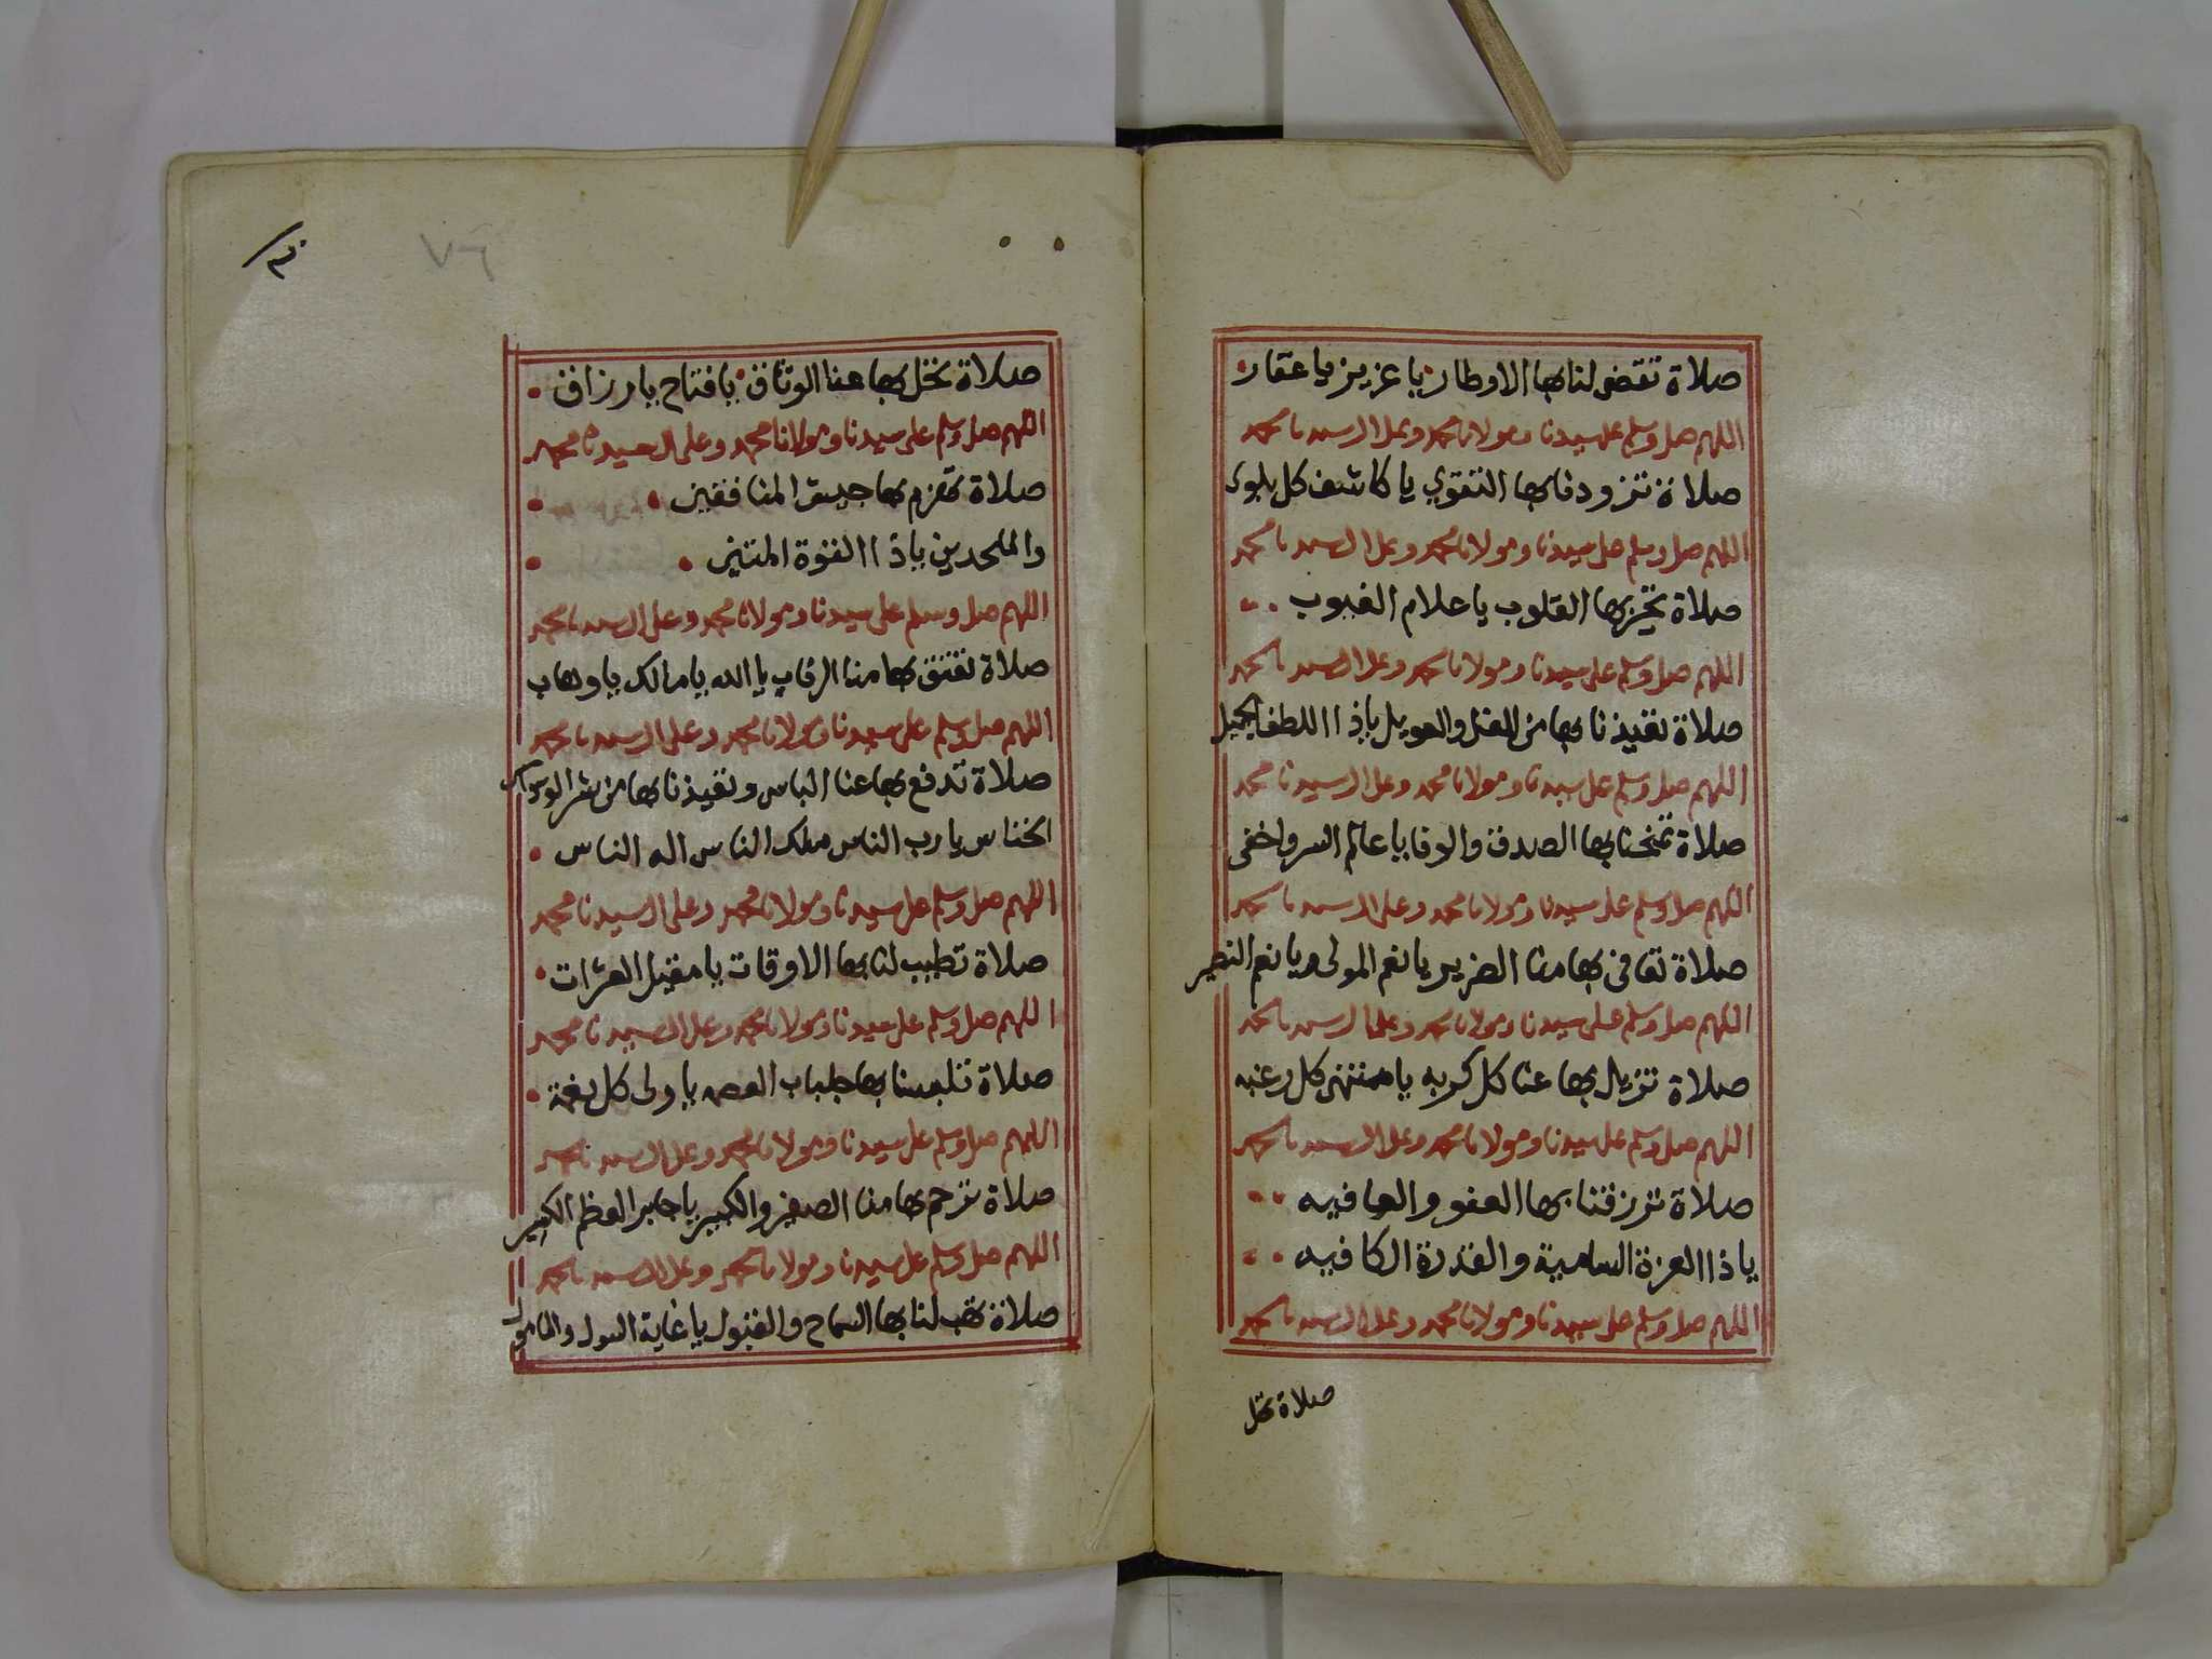 صلاة تقضي لنا بها الاوطار يا عزيز يا غفار
اللهم صل وسلم على سيدنا ومولانا محمد وعلى ال سيدنا محمد
صلاة تزودنا بها التقوي يا كاشف كل بلوى
اللهم صل وسلم على سيدنا ومولانا محمد وعلى ال سيدنا محمد
صلاة بها القلوب يا علام الغيوب
اللهم صل وسلم على سيدنا ومولانا محمد وعلى ال سيدنا محمد
صلاة تعيذنا بها من والعويل ياذا اللطف الجميل
اللهم صل وسلم على سيدنا ومولانا محمد وعلى ال سيدنا محمد
صلاة تمنحنا بها الصدق والوفا يا عالم السر واخفى
اللهم صل وسلم على سيدنا ومولانا محمد وعلى ال سيدنا محمد
صلاة تعافى بها منا الضرير يا نعم المولى ويا نعم النصير
اللهم صل وسلم على سيدنا ومولانا محمد وعلى ال سيدنا محمد
صلاة تزيل بها عنا كل كربه يا منتهى كل رغبه
اللهم صل وسلم على سيدنا ومولانا محمد وعلى ال سيدنا محمد
صلاة ترزقنا بها العفو والعافيه
يا ذا العزة السامية والقدرة الكافيه
اللهم صل وسلم على سيدنا ومولانا محمد وعلى ال سيدنا محمد
صلاة تحل
٧٦
صلاة تحل بها عنا الوثاق يا فتاح يا رزاق
اللهم صل وسلم على سيدنا ومولانا محمد وعلى ال سيدنا محمد
صلاة تهزم بها جيش المنافقين
والملحدين ياذا القوة المتين
اللهم صل وسلم على سيدنا ومولانا محمد وعلى ال سيدنا محمد
صلاة تعتق بها منا الرقاب يا الله يا مالك يا وهاب
اللهم صل وسلم على سيدنا ومولانا محمد وعلى ال سيدنا محمد
صلاة تدفع بها عنا الباس وتعيذنا بها من شر الوسواس
الخناس يا رب الناس ملك الناس اله الناس
اللهم صل وسلم على سيدنا ومولانا محمد وعلى ال سيدنا محمد
صلاة تطيب لنا بها الاوقات يا مقيل العثرات
اللهم صل وسلم على سيدنا ومولانا محمد وعلى ال سيدنا محمد
صلاة تلبسنا بها جلباب العصمه يا ولى كل نعمة
اللهم صل وسلم على سيدنا ومولانا محمد وعلى ال سيدنا محمد
صلاة ترحم بها منا الصغير والكبير يا جابر العظم الكسير
اللهم صل وسلم على سيدنا ومولانا محمد وعلى ال سيدنا محمد
صلاة تهب لنا بها السماح والقبول يا غاية السول والمامول